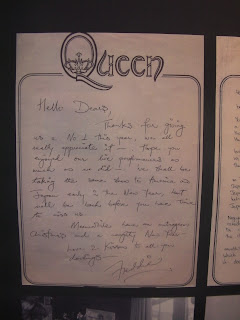 Queen
Hello Dears,
Thanks for giving
us a No 1 this year, we all
really appreciate it — Hope you
enjoyed our live performances as
much as we did — we shall be
taking the same show to America and
Japan early in the New Year, but
will be back before you have time
to miss us.
Meanwhile have an outrageous
Christmas and a naughty New Year —
Love & Kisses to all you
darlings —
Freddie